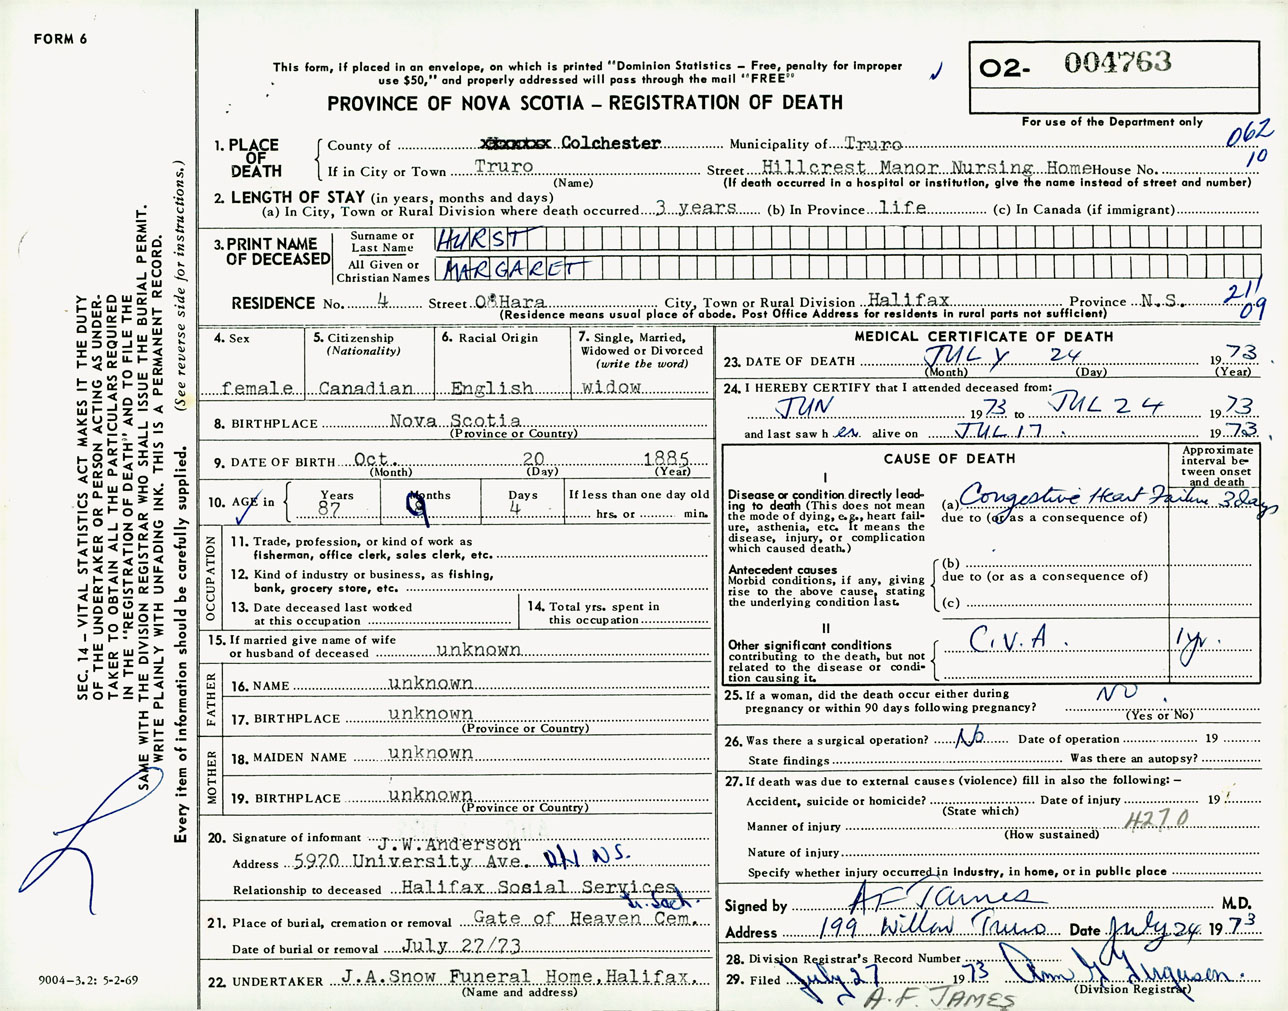 FORM 6
This form, if placed in an envelope, on which is printed "Dominion Statistics – Free, penalty for improper
use $50," and properly addressed will pass through the mail "FREE"
PROVINCE OF NOVA SCOTIA – REGISTRATION OF DEATH
O2- 004763
For use of the Department only
062
10
1. PLACE OF DEATH
County of Colchester Municipality of Truro
If in City or Town Truro Street Hillcrest Manor Nursing Home House No.
(Name) (If death occurred in a hospital or institution, give the name instead of street and number)
2. LENGTH OF STAY (in years, months and days)
(a) In City, Town or Rural Division where death occurred 3 years (b) In Province life (c) In Canada (if immigrant)
3. PRINT NAME OF DECEASED
Surname or Last Name HURST
All Given or Christian Names MARGARET
RESIDENCE No. 4 Street O'Hara City, Town or Rural Division Halifax Province N.S.
211
09
(Residence means usual place of abode. Post Office Address for residents in rural parts not sufficient)
4. Sex
female
5. Citizenship
(Nationality)
Canadian
6. Racial Origin
English
7. Single, Married,
Widowed or Divorced
(write the word)
widow
8. BIRTHPLACE Nova Scotia
(Province or Country)
9. DATE OF BIRTH Oct. 20 1885
(Month) (Day) (Year)
10. AGE in
Years
87
Months
9
Days
4
If less than one day old
hrs. or min.
OCCUPATION
11. Trade, profession, or kind of work as
fisherman, office clerk, sales clerk, etc.
12. Kind of industry or business, as fishing,
bank, grocery store, etc.
13. Date deceased last worked
at this occupation
14. Total yrs. spent in
this occupation
15. If married give name of wife
or husband of deceased unknown
FATHER
16. NAME unknown
17. BIRTHPLACE unknown
(Province or Country)
MOTHER
18. MAIDEN NAME unknown
19. BIRTHPLACE unknown
(Province or Country)
20. Signature of informant J.W.Anderson
Address 5970 University Ave. N.S.
Relationship to deceased Halifax Sosial Services
21. Place of burial, cremation or removal Gate of Heaven Cem.
Date of burial or removal July 27/73
22. UNDERTAKER J.A.Snow Funeral Home, Halifax.
(Name and address)
MEDICAL CERTIFICATE OF DEATH
23. DATE OF DEATH JULY 24 1973
(Month) (Day) (Year)
24. I HEREBY CERTIFY that I attended deceased from:
JUN 1973 to JUL 24 1973
and last saw her alive on JUL 17. 1973
CAUSE OF DEATH
Approximate
interval be-
tween onset
and death
I
Disease or condition directly lead-
ing to death (This does not mean
the mode of dying, e.g., heart fail-
ure, asthenia, etc. It means the
disease, injury, or complication
which caused death.)
(a) Congestive Heart Failure 3 days
due to (or as a consequence of)
Antecedent causes
Morbid conditions, if any, giving
rise to the above cause, stating
the underlying condition last.
(b)
due to (or as a consequence of)
(c)
II
Other significant conditions
contributing to the death, but not
related to the disease or condi-
tion causing it.
C.V.A. 1 yr.
25. If a woman, did the death occur either during
pregnancy or within 90 days following pregnancy? NO.
(Yes or No)
26. Was there a surgical operation? No Date of operation 19
State findings Was there an autopsy?
27. If death was due to external causes (violence) fill in also the following: –
Accident, suicide or homicide? Date of injury 19
(State which)
Manner of injury 4270
(How sustained)
Nature of injury
Specify whether injury occurred in industry, in home, or in public place
Signed by A F James M.D.
Address 199 Willow Truro Date July 24 1973
28. Division Registrar's Record Number
29. Filed July 27 1973 Ann G Ferguson.
(Division Registrar)
A.F. JAMES
SEC. 14 – VITAL STATISTICS ACT MAKES IT THE DUTY
OF THE UNDERTAKER OR PERSON ACTING AS UNDER-
TAKER TO OBTAIN ALL THE PARTICULARS REQUIRED
IN THE "REGISTRATION OF DEATH" AND TO FILE THE
SAME WITH THE DIVISION REGISTRAR WHO SHALL ISSUE THE BURIAL PERMIT.
WRITE PLAINLY WITH UNFADING INK. THIS IS A PERMANENT RECORD.
Every item of information should be carefully supplied. (See reverse side for instructions.)
9004–3.2: 5-2-69